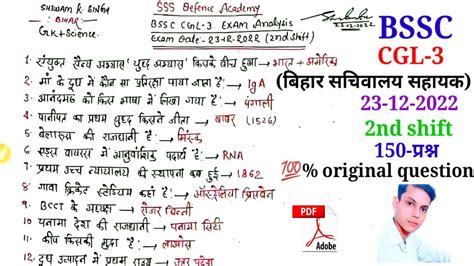 SHIWAM K. SINGH
BIHAR
GK+Science
SSS Defence Academy
BSSC CGL-3 EXAM Analysis
Exam Date:- 23-12-2022 (2nd shift)
23-12-2022
1. संयुक्त सैन्य अभ्यास 'युद्ध अभ्यास' किसके बीच हुआ → भारत + अमेरिका
2. माँ के दूध में कौन सा एन्टिबॉडी पाया जाता है:→ IgA
3. आनंदमठ को किस भाषा में लिखा गया है:→ बंगाली
4. पानीपत का प्रथम युद्ध किसने जीता → बाबर (1526)
5. बेलारूस की राजधानी है:→ मिंस्क
6. एड्स वायरस में आनुवांशिक पदार्थ है:→ RNA
7. प्रथम उच्च न्यायालय की स्थापना कब हुई → 1862
8. गाबा क्रिकेट स्टेडियम कहाँ है:→ ऑस्ट्रेलिया ब्रिसबेन
9. BCCI के अध्यक्ष → रोजर बिन्नी
10. पनामा देश की राजधानी → पनामा सिटी
11. कीप किसकी मुद्रा है:→ लाओस
12. दूध उत्पादन में प्रथम राज्य → उत्तर प्रदेश
BSSC
CGL-3
(बिहार सचिवालय सहायक)
23-12-2022
2nd shift
150-प्रश्न
💯% original question
PDF
Adobe